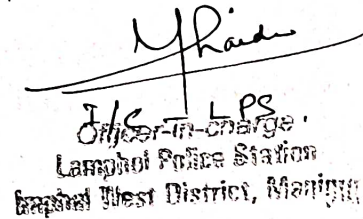 I/C LPS
Officer-in-charge,
Lamphel Police Station
Imphal West District, Manipur